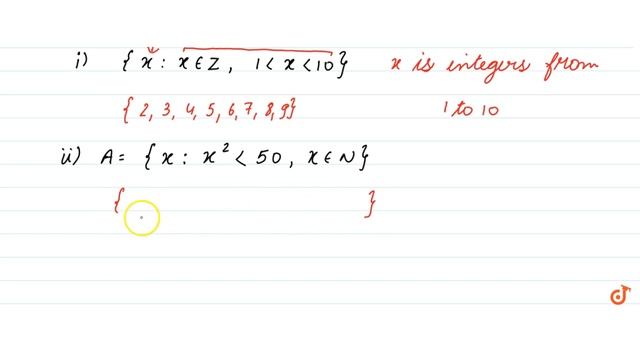 i) { x : x ∈ Z, 1 < x < 10 } x is integers from
{ 2, 3, 4, 5, 6, 7, 8, 9 } 1 to 10
ii) A = { x : x² < 50, x ∈ N }
{ }